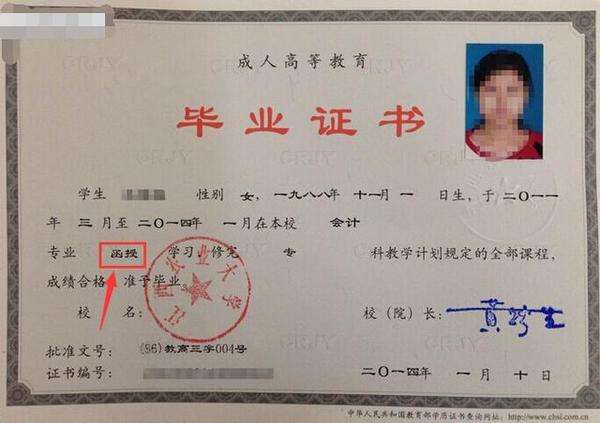 成人高等教育
毕业证书
学生 性别 女，一九八八年 十一月 一 日生，于二〇一一
年 三 月至 二〇一四年 一月在本校 会计
专业 函授 学习，修完 专 科教学计划规定的全部课程，
成绩合格，准予毕业
校 名：
江西农业大学
校（院）长：
批准文号： (86)教高三字004号
证书编号：
二〇一四年 一 月 十 日
中华人民共和国教育部学历证书查询网址：http://www.chsi.com.cn